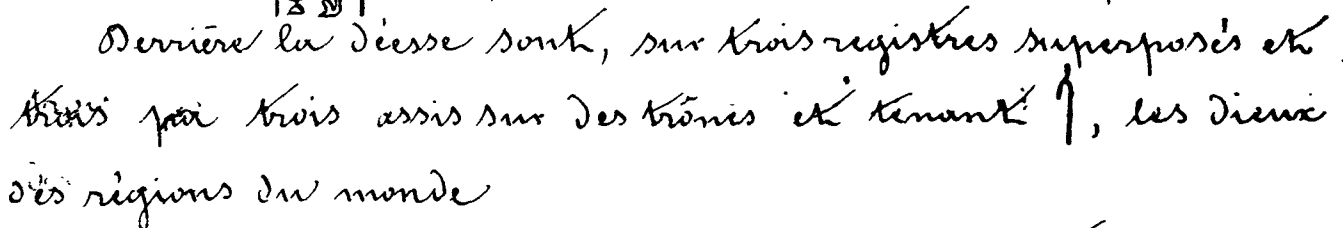 Derrière la déesse sont, sur trois registres superposés et
trois par trois assis sur des trônes et tenant 𓋾, les dieux
des régions du monde